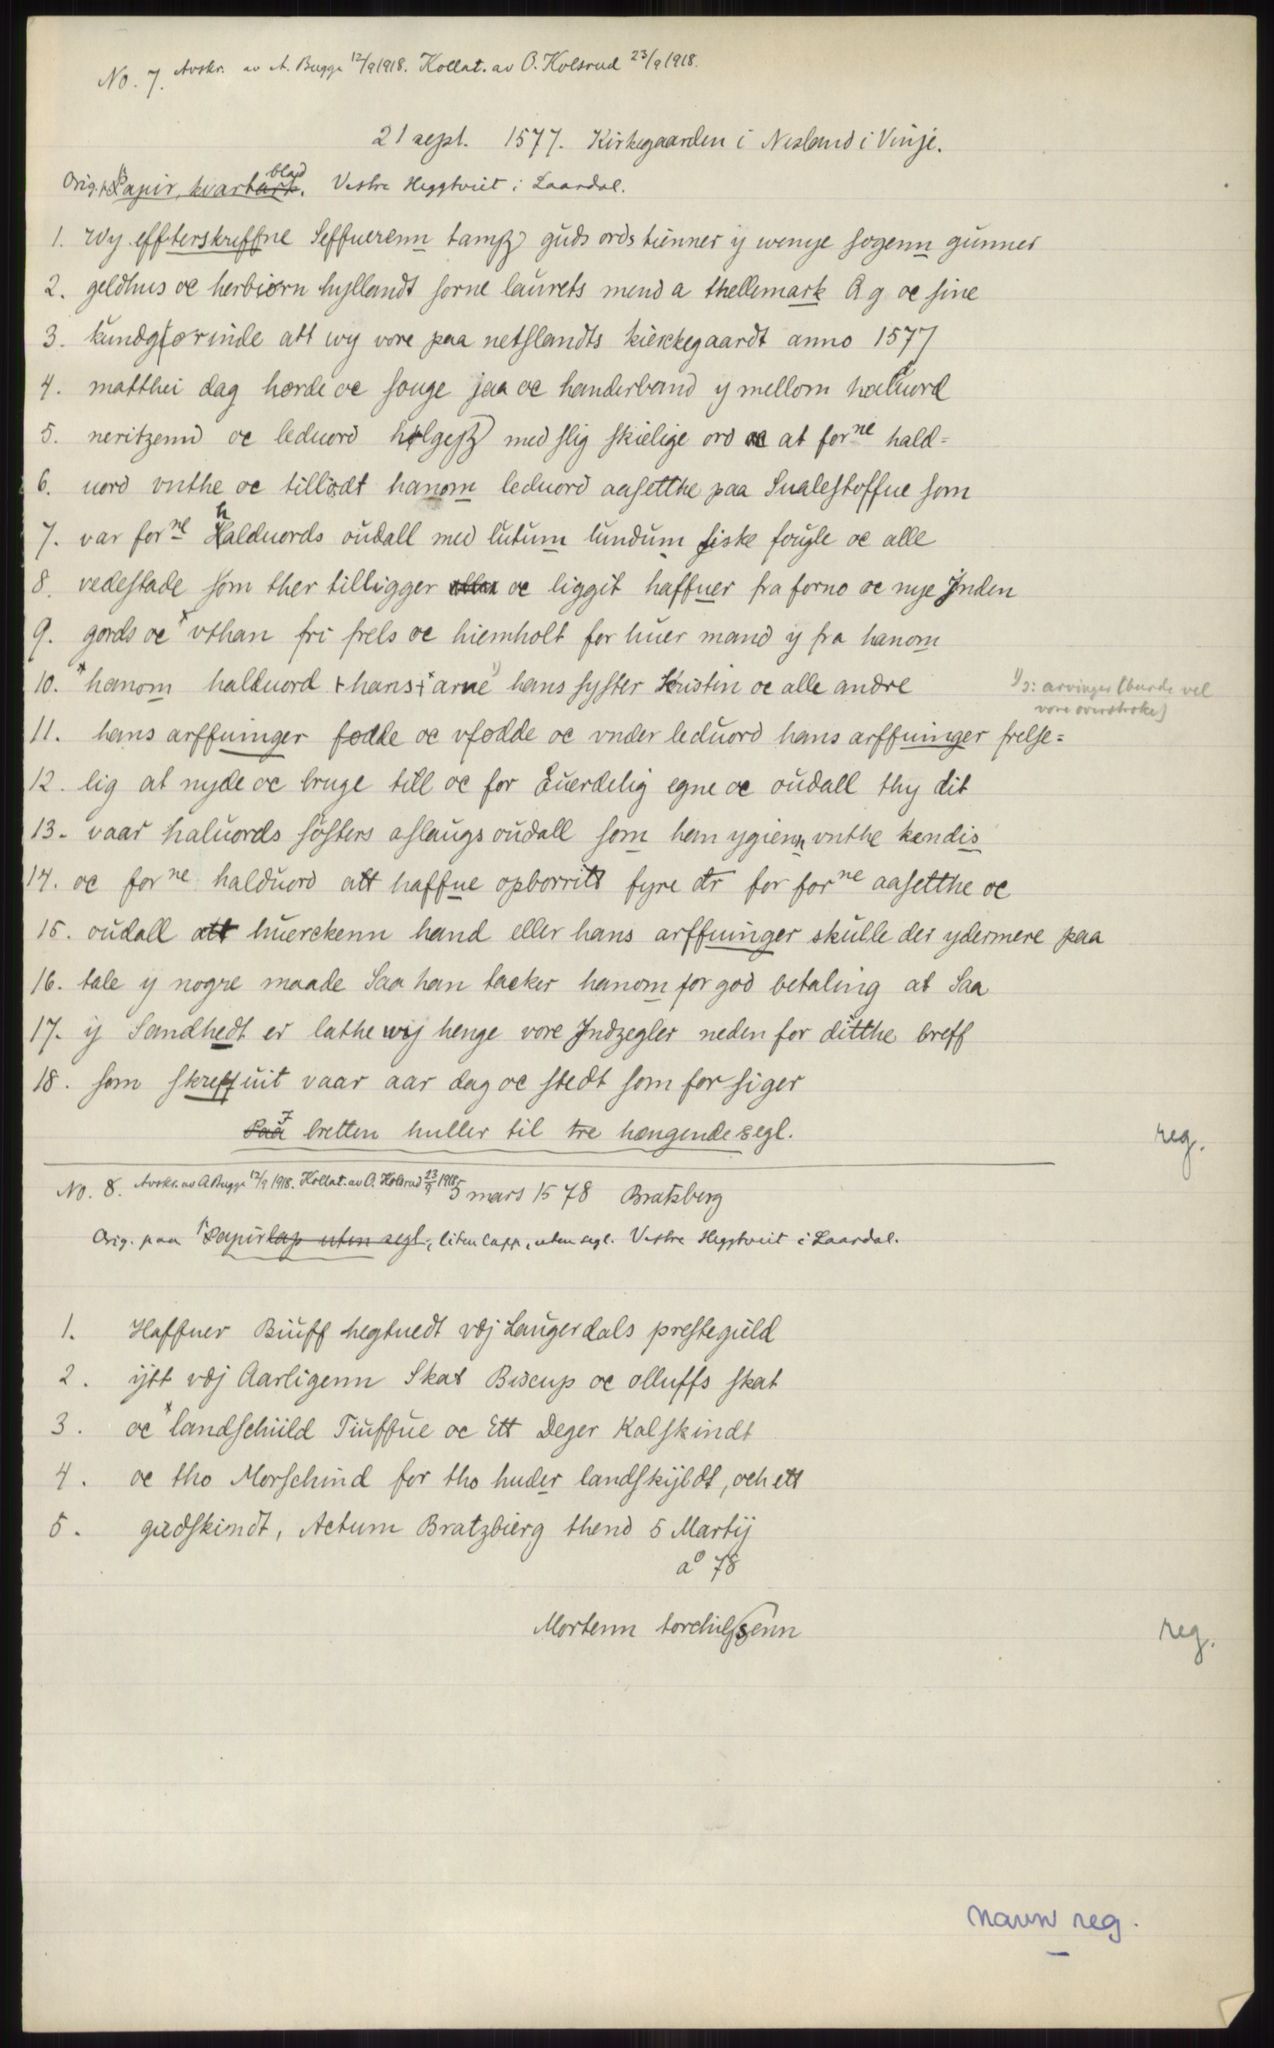 No. 7. Avskr. av A. Bugge 12/9 1918. Kollat. av O. Kolsrud 23/9 1918.
21 sept. 1577. Kirkegaarden i Nesland i Vinje.
Orig. Papir, kvartblad. Vestre Heggtveit i Laardal.
1. Wy effterskreffne Seffuerenn tamß guds ords tienner ÿ wenye sogenn gunner
2. geldhus oc herbiørn hyllandt sorne laurets mend a thellemark A g oc sine
3. kundgørinde att wy vore paa netslandts kierckegaardt anno 1577
4. matthei dag hørde oc souge jaa oc handerband y mellom haluord
5. neritzend oc leduord hølgeß med slig skielige ord oc at forne hald=
6. uord vnthe oc tillodt hanom leduord aasetthe paa Sualestoffue som
7. var forne halduords oudall med lutum lundum fiske fougle oc alle
8. vedestade som ther tilligger oc liggit haffuer fra forno oc nye Jnden
9. gords oc *vthan fri frels oc hiemholt for huer mand y fra hanom
10. *hanom halduord + hans + *arne 1) hans syster Kristin oc alle andre
1) ɔ: arvinger (burde vel
være overstrøket)
11. hans arffuinger fødde oc vfødde oc vnder leduord hans arffuinger frelse=
12. lig at nyde oc bruge till oc for Euerdelig egne oc oudall thy dit
13. vaar haluords søsters aslaugs oudall som han ygienn vnthe kendis
14. oc forne halduord att haffue opborrit fyre dr for forne aasetthe oc
15. oudall att huerckenn hand eller hans arffuinger skulle der ydermere paa
16. tale y nogre maade Saa han tacker hanom for god betaling at Saa
17. ÿ Sandhedt er lathe wij henge vore Jndzegler neden for ditthe breff
18. som skreffuit vaar aar dag oc stedt som for siger
I bretten huller til tre hængende segl.
reg.
No. 8. Avskr. av A. Bugge 12/9 1918. Kollat. av O. Kolsrud 23/9 1918. 5 mars 1578 Bratsberg
Orig. paa Papir lap uten segl, liten lapp, uten segl. Vestre Heggtveit i Laardal.
1. Haffuer Biuff hegtuedt vdj Laugerdals prestegield
2. ÿtt vdj Aarligenn Skat Biscup oc olluffs skat
3. oc *landschuld Tiuffue oc Ett Deger Kalskindt
4. oc tho Morschind for tho huder landskÿldt, och ett
5. giedskindt, Actum Bratzbierg thend 5 Martij
aº 78
Mortenn torchilssenn
reg.
navn reg.